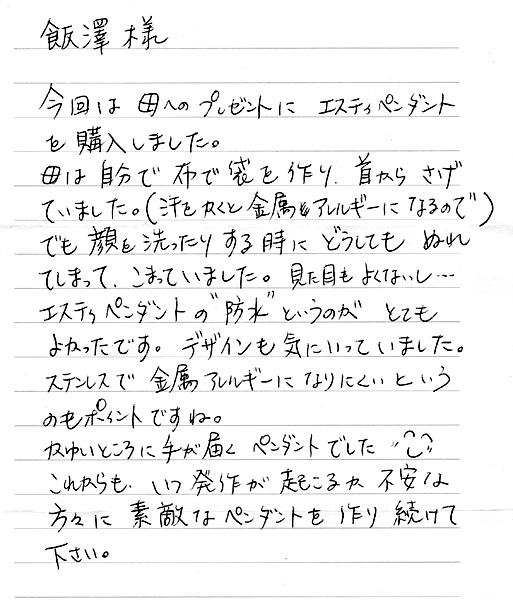 飯澤 様
今回は 母への プレゼントに エスティペンダント
を 購入しました。
母は 自分で 布で 袋を 作り、首から さげ
ていました。(汗をかくと 金属アレルギーに なるので)
でも 顔を 洗ったり する 時に どうしても ぬれ
てしまって、こまっていました。見た目も よくないし…
エスティペンダントの "防水" というのが とても
よかったです。デザインも 気にいっていました。
ステンレスで 金属アレルギーに なりにくい という
のもポイントですね。
かゆいところに 手が届く ペンダントでした
これからも、いつ 発作が 起こるか 不安な
方々に 素敵なペンダントを 作り 続けて
下さい。